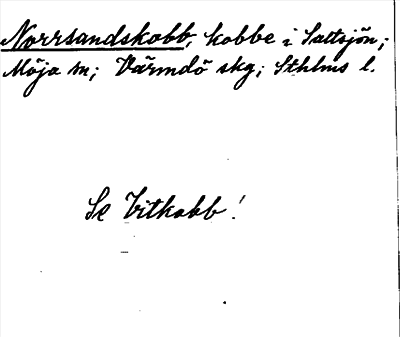 Norrsandskobb, kobbe i Saltsjön;
Möja sn; Värmdö skg; Sthlms l.
Se Vitkobb!